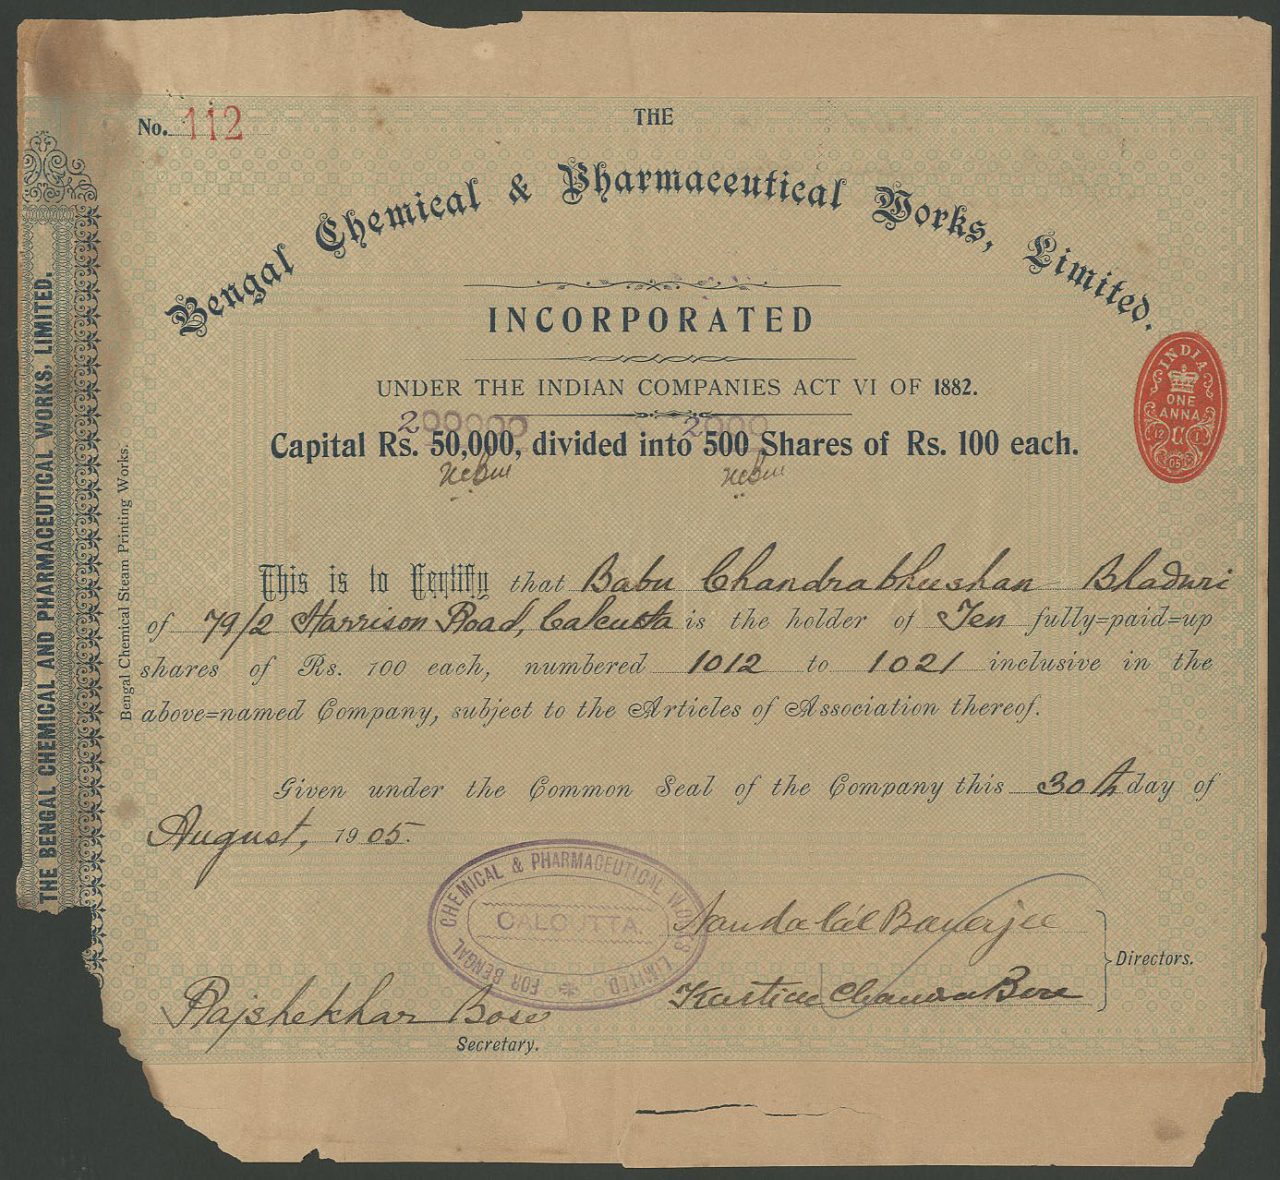 No. 112
THE
Bengal Chemical & Pharmaceutical Works, Limited.
INCORPORATED
UNDER THE INDIAN COMPANIES ACT VI OF 1882.
200000 2000
Capital Rs. 50,000, divided into 500 Shares of Rs. 100 each.
INDIA
ONE
ANNA
This is to Certify that Babu Chandrabhushan Bhaduri
of 79/2 Harrison Road, Calcutta is the holder of Ten fully=paid=up
shares of Rs. 100 each, numbered 1012 to 1021 inclusive in the
above=named Company, subject to the Articles of Association thereof.
Given under the Common Seal of the Company this 30th day of
August, 1905.
FOR BENGAL CHEMICAL & PHARMACEUTICAL WORKS LIMITED.
CALCUTTA.
Nanda Lal Banerjee
Kartic Chandra Bose
Directors.
Rajshekhar Bose
Secretary.
THE BENGAL CHEMICAL AND PHARMACEUTICAL WORKS, LIMITED.
Bengal Chemical Steam Printing Works.